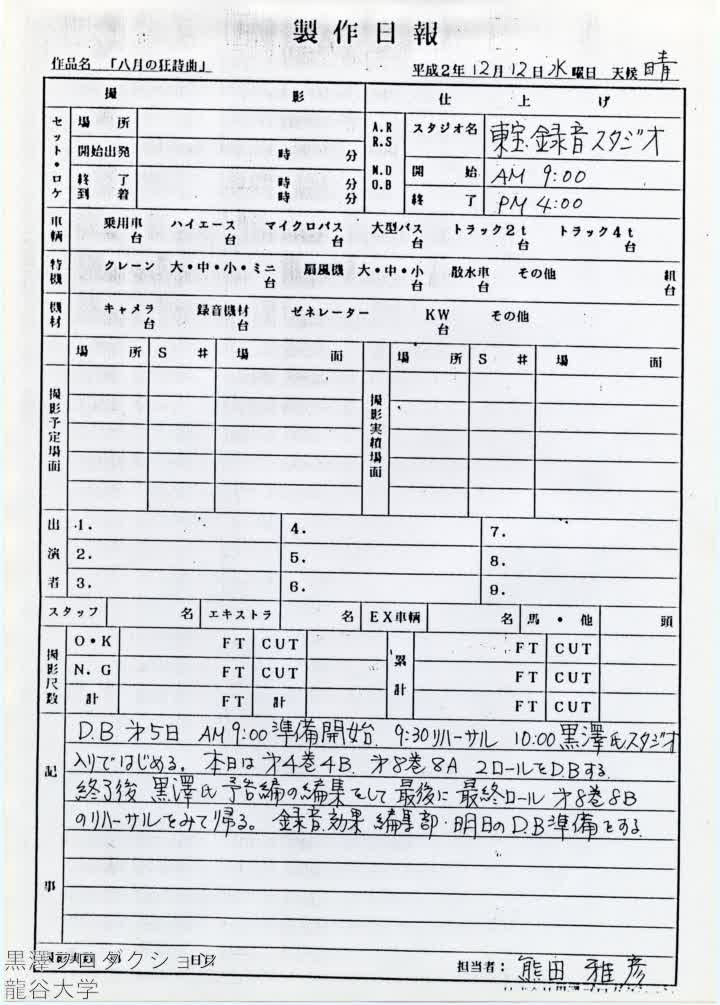 製作日報
作品名 「八月の狂詩曲」 平成2年12月12日水曜日 天候 晴
撮 影 仕 上 げ
セット・ロケ 場 所 A.R R.S スタジオ名 東宝録音スタジオ
開始出発 時 分 M.D D.B 開 始 AM 9:00
終 了 時 分 終 了 PM 4:00
到 着 時 分
車輌 乗用車 台 ハイエース 台 マイクロバス 台 大型バス 台 トラック2t 台 トラック4t 台
特機 クレーン 大・中・小・ミニ 台 扇風機 大・中・小 台 散水車 台 その他 組 台
機材 キャメラ 台 録音機材 台 ゼネレーター KW 台 その他
場 所 S # 場 面 場 所 S # 場 面
撮影予定場面 撮影実積場面
出演者 1. 4. 7.
2. 5. 8.
3. 6. 9.
スタッフ 名 エキストラ 名 EX車輌 名 馬・他 頭
撮影尺数 O・K FT CUT 累計 FT CUT
N.G FT CUT FT CUT
計 FT 計 FT CUT
記事
D.B 第5日 AM 9:00 準備開始. 9:30リハーサル 10:00 黒澤氏スタジオ
入りではじめる。本日は第4巻4B. 第8巻8A 2ロールをD.Bする.
終了後 黒澤氏 予告編の編集をして最後に最終ロール 第8巻8B
のリハーサルをみて帰る。録音.効果 編集部・明日のD.B準備をする.
担当者: 熊田雅彦
黒澤プロダクション
龍谷大学